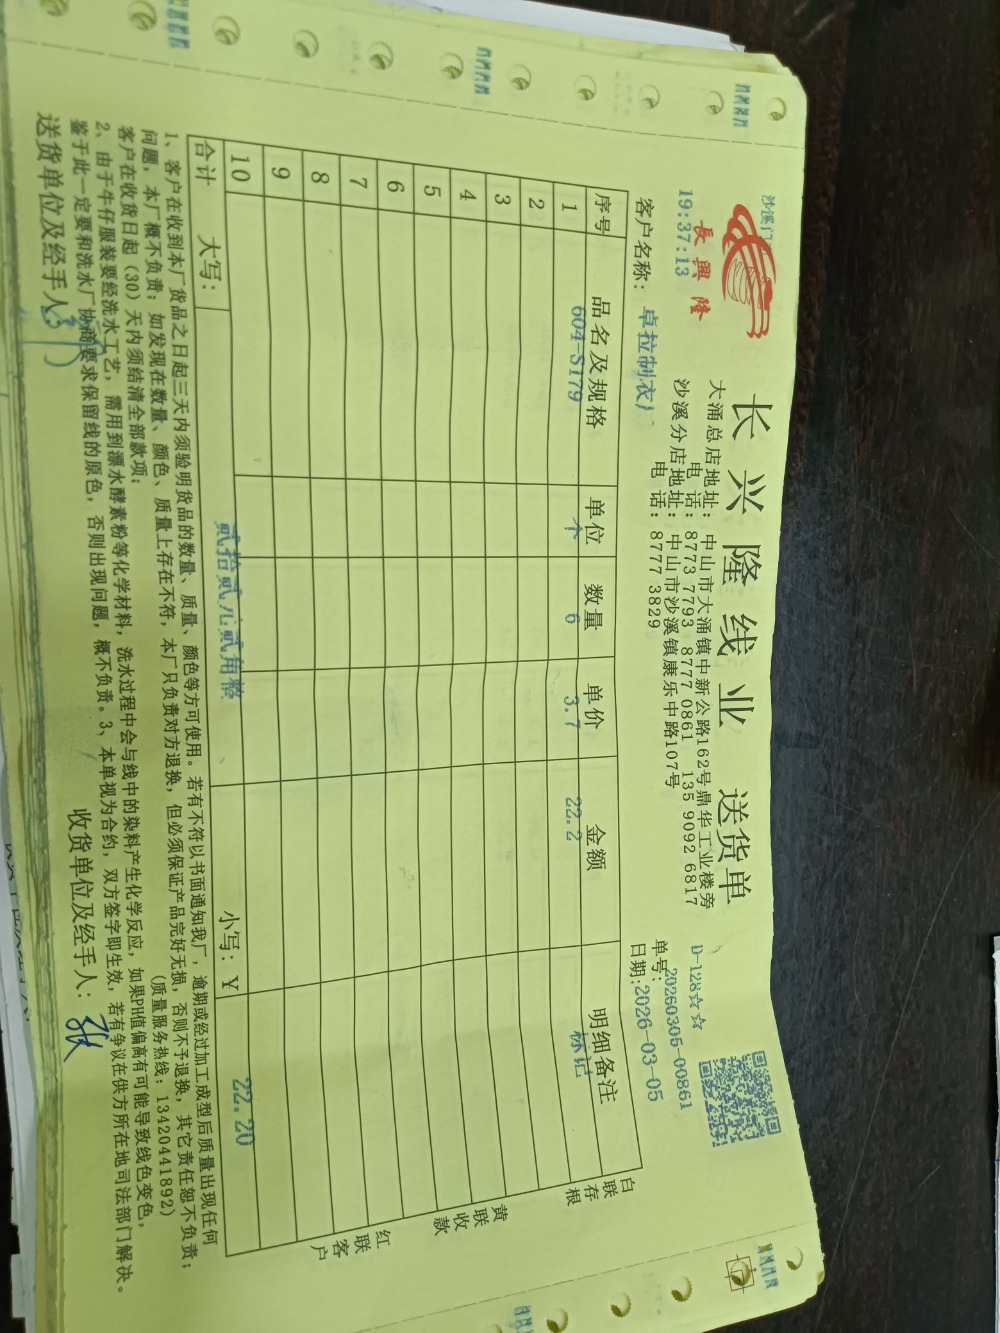 長興隆
19:37:13
长兴隆线业 送货单
大涌总店地址：中山市大涌镇中新公路162号鼎华工业楼旁
电话：8773 7793 8777 0861 135 9092 6817
沙溪分店地址：中山市沙溪镇康乐中路107号
电话：8777 3829
D-128☆☆
单号:20260305-00861
客户名称：卓拉制衣厂
日期:2026-03-05
序号 品名及规格 单位 数量 单价 金额 明细备注
1 604-S179 个 6 3.7 22.2 标记
2
3
4
5
6
7
8
9
10
合计 大写： 贰拾贰元贰角整 小写：￥ 22.20
白联存根
黄联收款
红联客户
1、客户在收到本厂货品之日起三天内须验明货品的数量、质量、颜色等方可使用。若有不符以书面通知我厂，逾期或经过加工成型后质量出现任何
问题，本厂概不负责；如发现在数量、颜色、质量上存在不符，本厂只负责对方退换，但必须保证产品完好无损，否则不予退换，其它责任恕不负责；
客户在收货日起（30）天内须结清全部款项；（质量服务热线：13420441892）
2、由于牛仔服装要经洗水工艺，需用到漂水酵素粉等化学材料，洗水过程中会与线中的染料产生化学反应，如果PH值偏高有可能导致线色变色，
鉴于此一定要和洗水厂协商要求保留线的原色，否则出现问题，概不负责。3、本单视为合约，双方签字即生效，若有争议在供方所在地司法部门解决。
送货单位及经手人：
收货单位及经手人：张